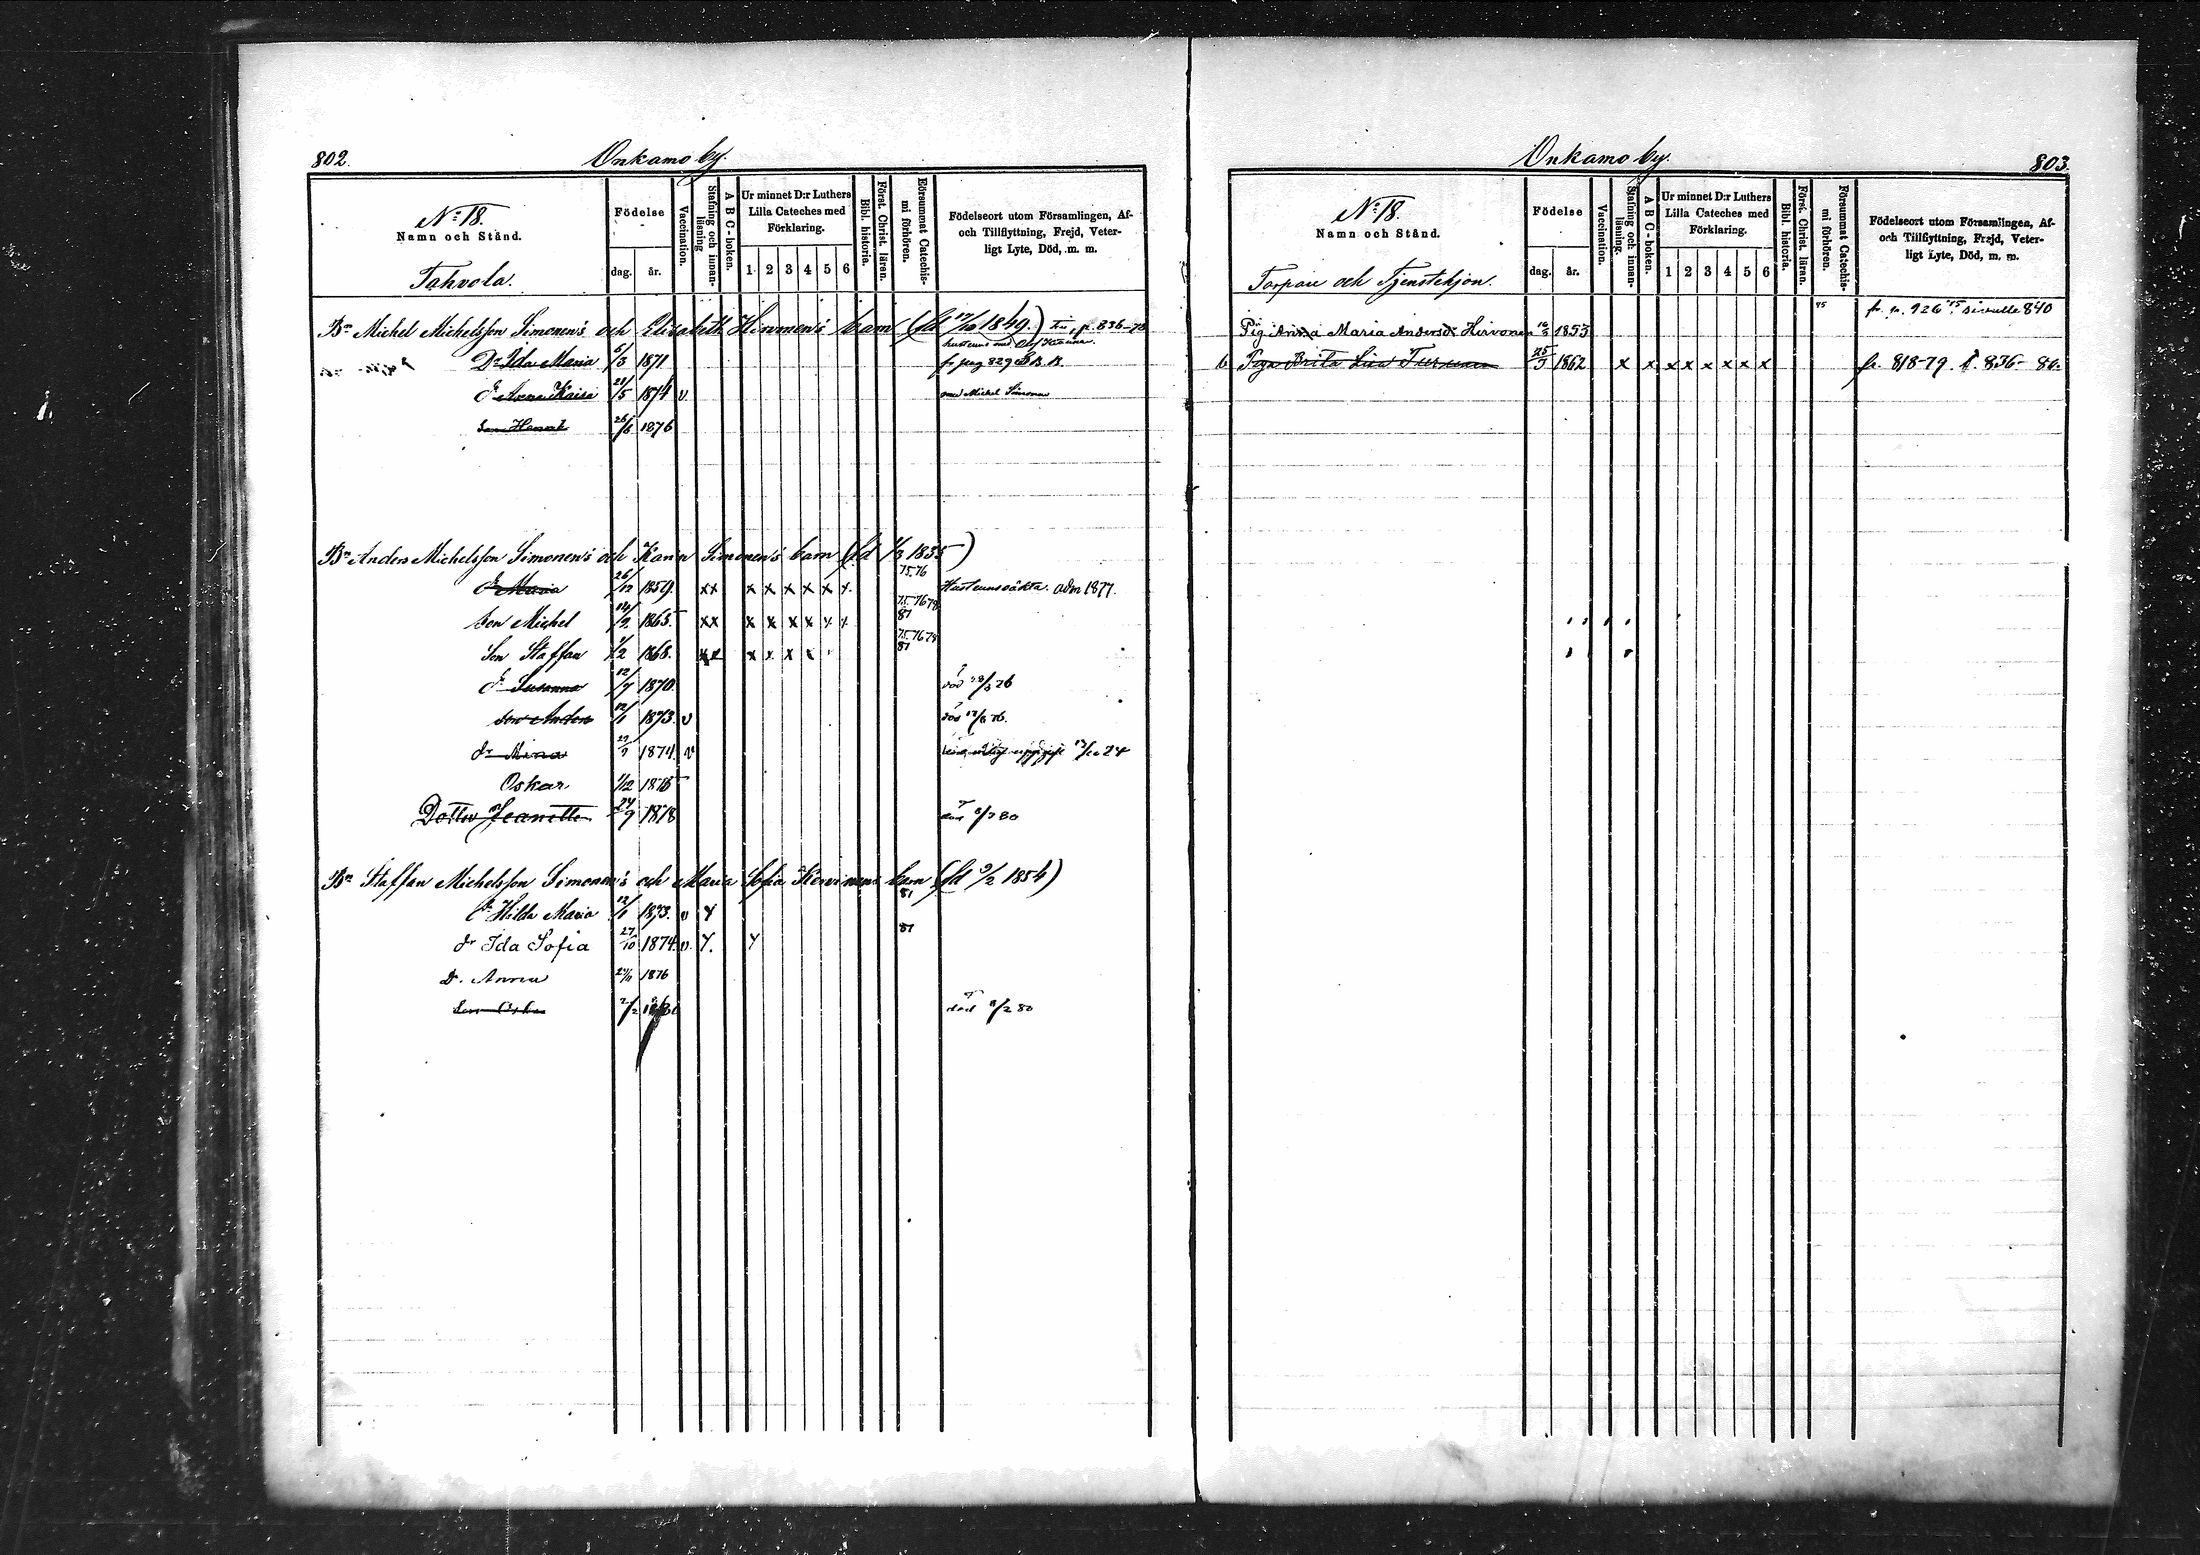 802.
Onkamo by.
No: 18.
Namn och Stånd.
Tahvola.
Födelse
dag.
år.
Vaccination.
Stafning och innan-
läsning
A B C-boken.
Ur minnet D:r Luthers
Lilla Cateches med
Förklaring.
1 2 3 4 5 6
Bibl. historia.
Först. Christ. läran.
Försummat Catechis-
mi förhören.
Födelseort utom Församlingen, Af-
och Tillflyttning, Frejd, Veter-
ligt Lyte, Död, m. m.
Bn Michel Michelsson Simonen's och Elisabeth Hirvonen's barn (fd 17/10 1849.) p. 836-78
Dr Ida Maria 5/3 1871 fr pag 829
dr Anna Kaisa 21/5 1874 v med Michel Simonen
Son 26/6 1876
Bn Anders Michelsson Simonen's och Karin Simonen's barn (fd 1/3 1835)
75.76
dr Maria 26/12 1859. xx x x x x x x. adm 1877.
75.76 78
81
Son Michel 14/2 1865. xx x x x x x x
75.76 78
81
Son Staffan 1/2 1868. xx x x x x
dr Susanna 12/7 1870. död 28/3 76
Son Anders 12/1 1873. v död 17/6 76.
dr Mina 1874. v
Oskar 1/12 1876
Dotter Jeanette 24/9 1878 död 8/7 80
Bn Staffan Michelsson Simonen's och Maria Sofia Kervinens barn (fd 9/2 1854)
81
dr Hilda Maria 12/1 1873. v x
81
dr Ida Sofia 27/10 1874. v. x. x
Dr. Anna 1876
Son Oskar 7/2 1880 död 8/2 80
Onkamo by.
803.
No: 18.
Namn och Stånd.
Torpare och Tjenstehjon.
Födelse
dag.
år.
Vaccination.
Stafning och innan-
läsning.
A B C-boken.
Ur minnet D:r Luthers
Lilla Cateches med
Förklaring.
1 2 3 4 5 6
Bibl. historia.
Först. Christ. läran.
Försummat Catechis-
mi förhören.
Födelseort utom Församlingen, Af-
och Tillflyttning, Frejd, Veter-
ligt Lyte, Död, m. m.
75 fr. p. 926 840
Pig Anna Maria Andersdr Hirvonen 1853
Piga Brita Lisa Turunen 25/3 1862 x x x x x x x x fr. 818-79. t. 836-80.